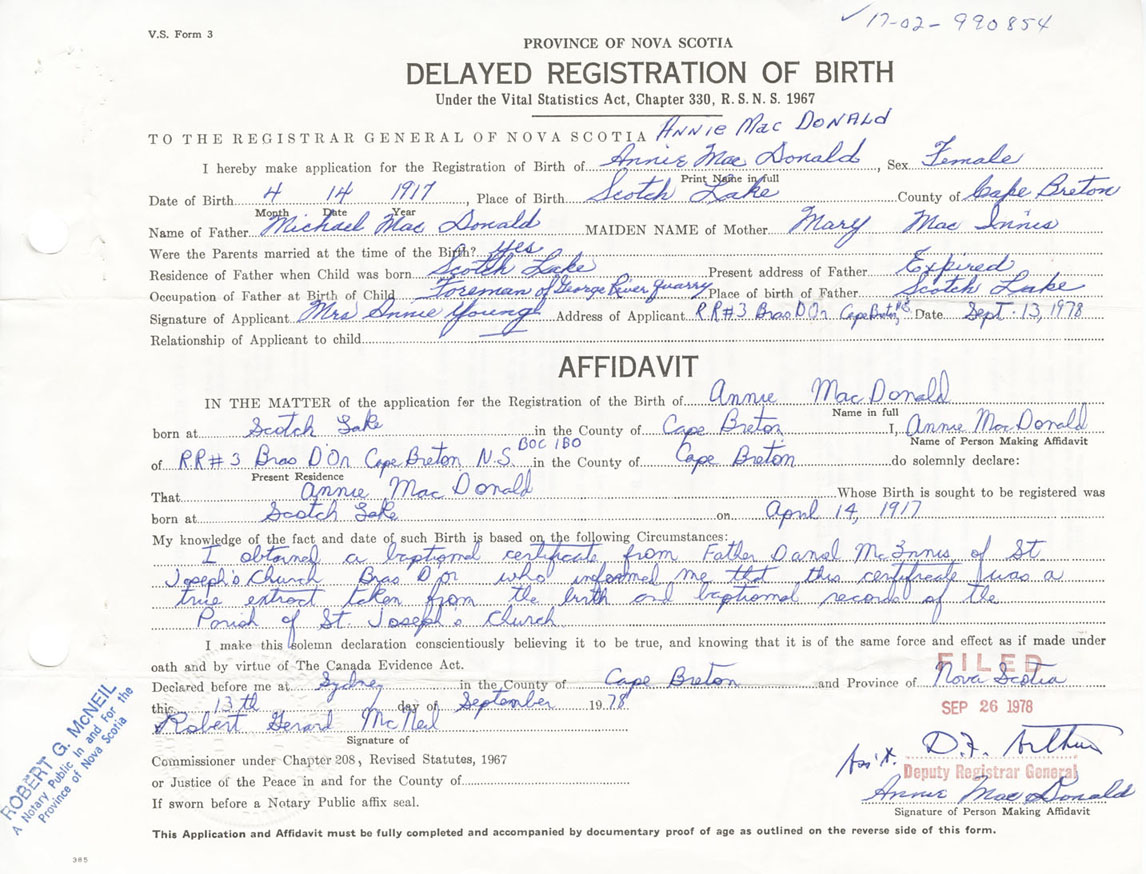 ✓ 17-02-990854
V.S. Form 3
PROVINCE OF NOVA SCOTIA
DELAYED REGISTRATION OF BIRTH
Under the Vital Statistics Act, Chapter 330, R. S. N. S. 1967
TO THE REGISTRAR GENERAL OF NOVA SCOTIA ANNIE MacDONALD
I hereby make application for the Registration of Birth of Annie Mac Donald, Sex Female
Print Name in full
Date of Birth 4 14 1917, Place of Birth Scotch Lake County of Cape Breton
Month Date Year
Name of Father Michael Mac Donald MAIDEN NAME of Mother Mary Mac Innis
Were the Parents married at the time of the Birth? yes
Residence of Father when Child was born Scotch Lake Present address of Father Expired
Occupation of Father at Birth of Child Foreman of George River Quarry Place of birth of Father Scotch Lake
Signature of Applicant Mrs Annie Young Address of Applicant R.R#3 Bras D Or Cape Breton N.S. Date Sept. 13, 1978
Relationship of Applicant to child
AFFIDAVIT
IN THE MATTER of the application for the Registration of the Birth of Annie MacDonald
Name in full
born at Scotch Lake in the County of Cape Breton I, Annie MacDonald
Name of Person Making Affidavit
BOC 1BO
of R.R#3 Bras D Or Cape Breton N.S. in the County of Cape Breton do solemnly declare:
Present Residence
That Annie MacDonald Whose Birth is sought to be registered was
born at Scotch Lake on April 14, 1917
My knowledge of the fact and date of such Birth is based on the following Circumstances:
I obtained a baptismal certificate from Father Daniel McInnis of St
Joseph's Church Bras D'or who informed me that this certificate was a
true extract taken from the birth and baptismal records of the
Parish of St. Joseph's Church.
I make this solemn declaration conscientiously believing it to be true, and knowing that it is of the same force and effect as if made under
oath and by virtue of The Canada Evidence Act.
FILED
Declared before me at Sydney in the County of Cape Breton and Province of Nova Scotia
this 13th day of September 1978
SEP 26 1978
Robert Gerard McNeil
Signature of
Commissioner under Chapter 208, Revised Statutes, 1967
or Justice of the Peace in and for the County of
If sworn before a Notary Public affix seal.
ROBERT G. McNEIL
A Notary Public in and for the
Province of Nova Scotia
Ass't. D.F. Arthur
Deputy Registrar General
Annie MacDonald
Signature of Person Making Affidavit
This Application and Affidavit must be fully completed and accompanied by documentary proof of age as outlined on the reverse side of this form.
385